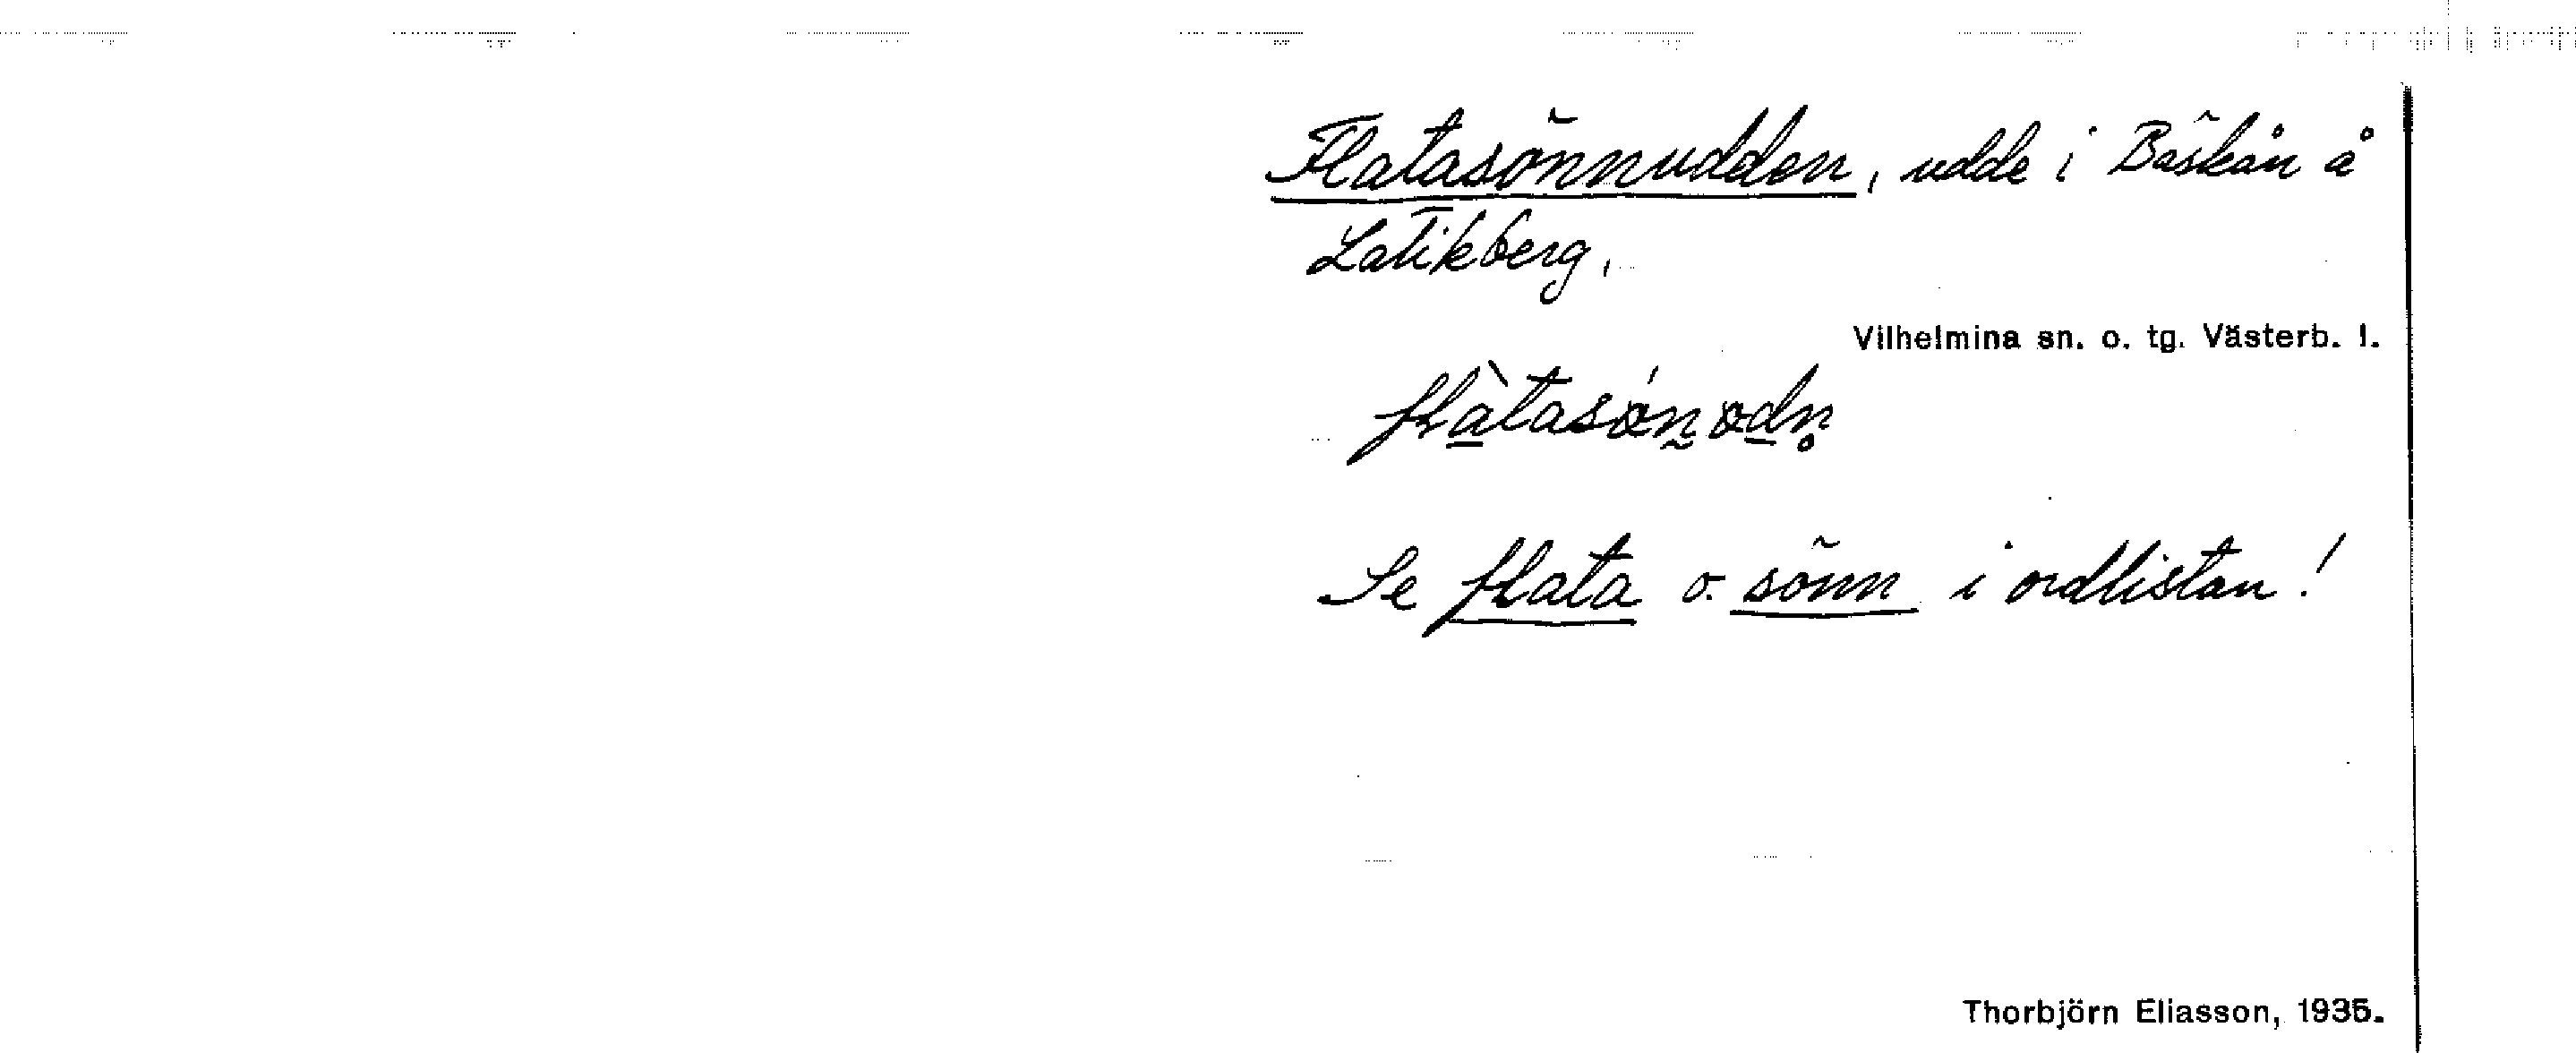 Flatasönnudden, udde i Bäskån å
Latikberg.
Vilhelmina sn. o. tg. Västerb. l.
Se flata o. sönn i ordlistan!
Thorbjörn Eliasson, 1935.